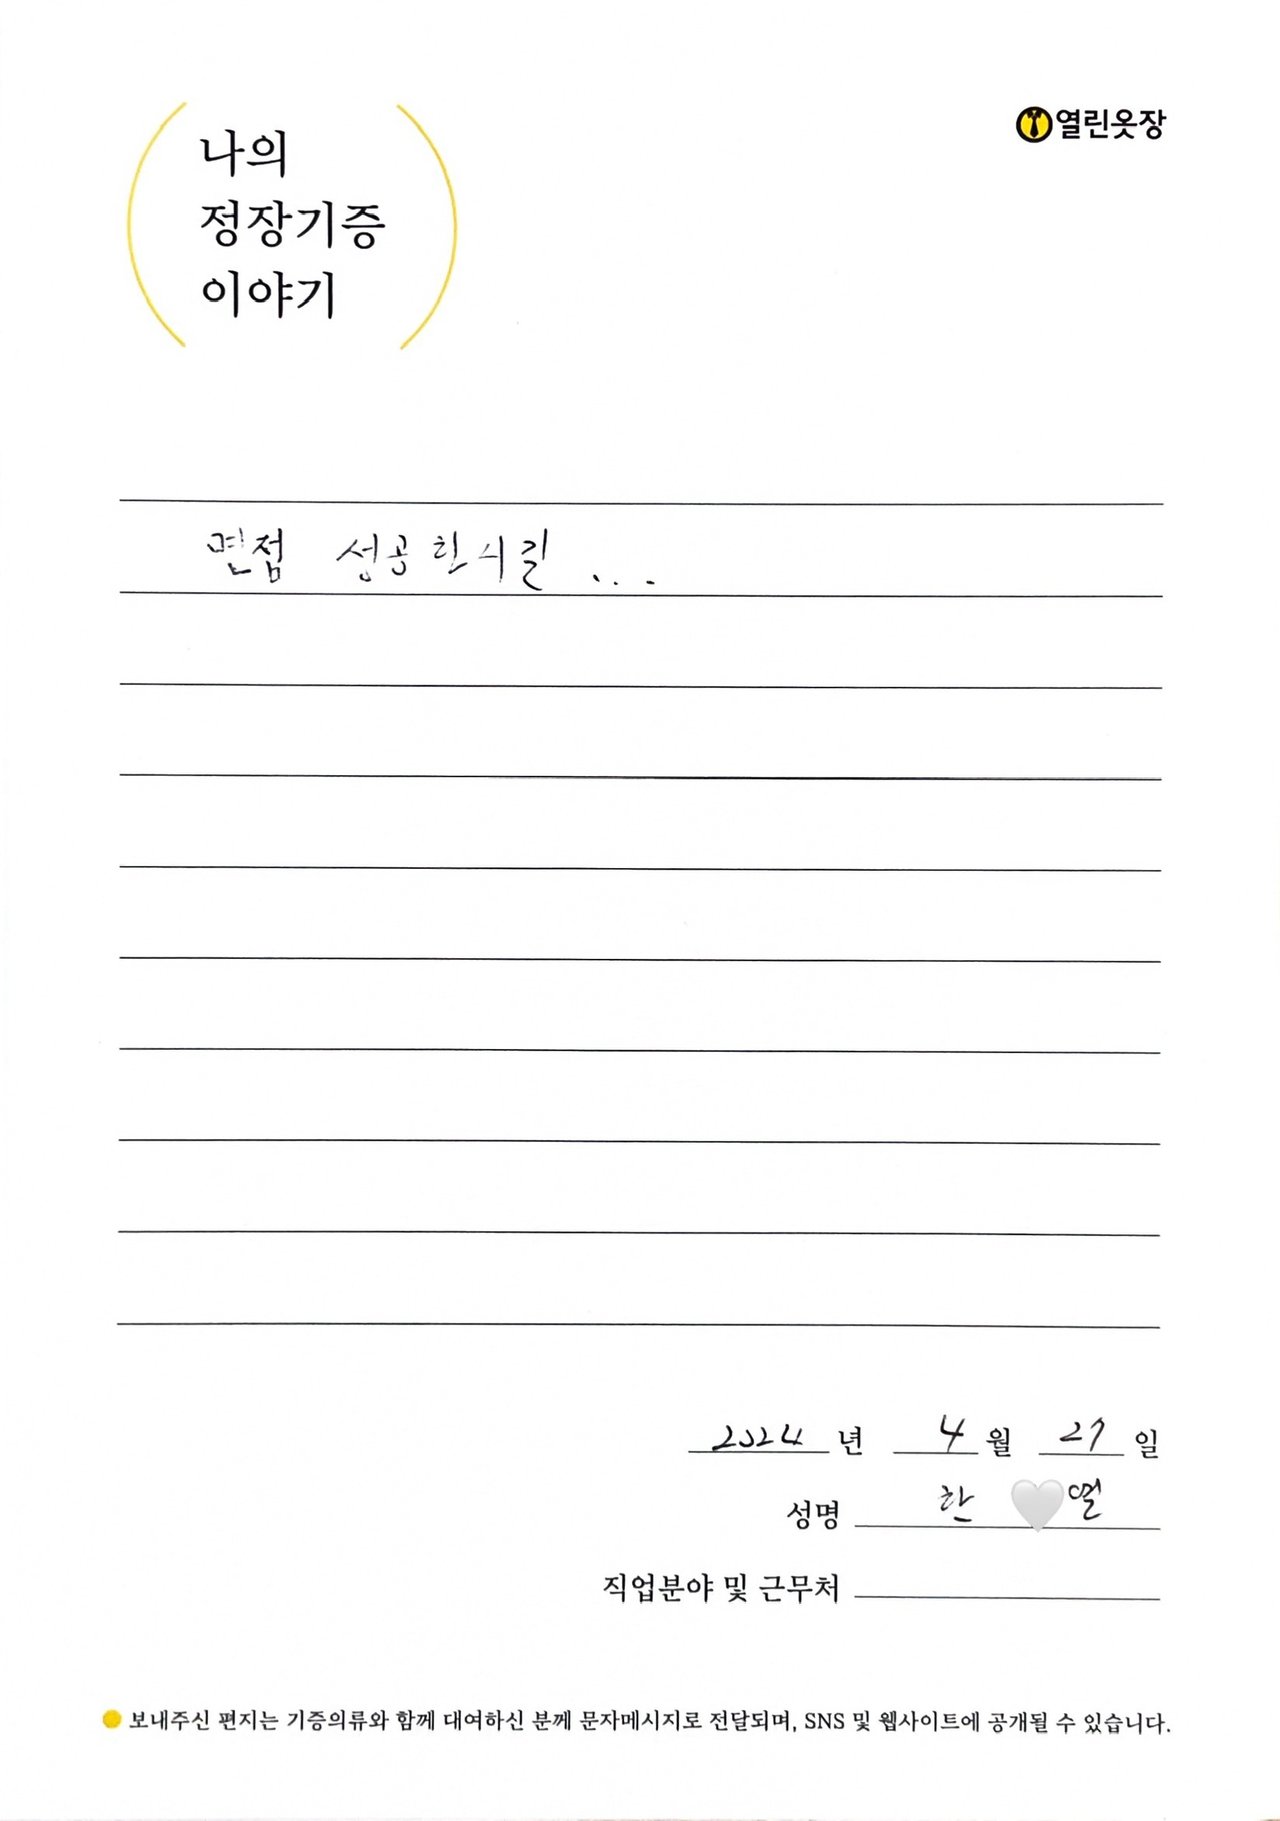 나의
정장기증
이야기
열린옷장
면접 성공하시길 ...
2024 년 4 월 27 일
성명 한 🤍열
직업분야 및 근무처
보내주신 편지는 기증의류와 함께 대여하신 분께 문자메시지로 전달되며, SNS 및 웹사이트에 공개될 수 있습니다.